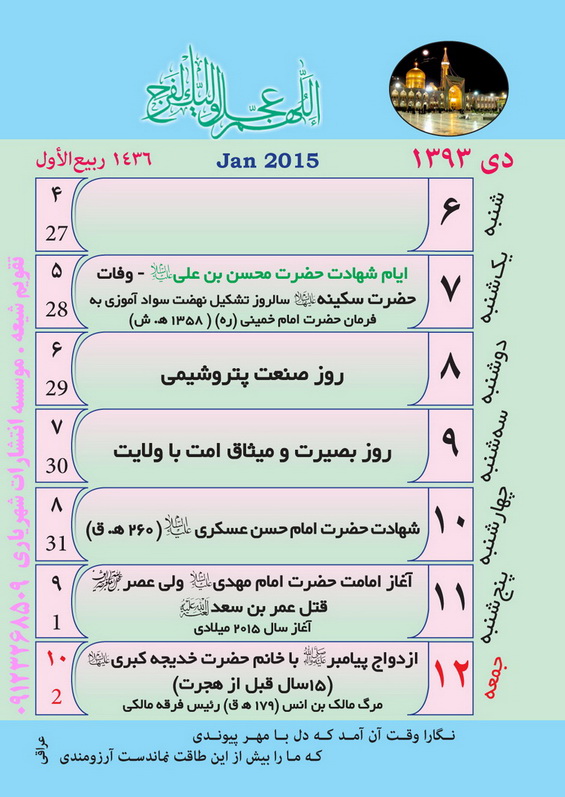 اللّهم عجل لولیک الفرج
دی ۱۳۹۳
Jan 2015
۱۴۳۶ ربیع‌الأول
شنبه
۶
۴
27
یک‌شنبه
۷
ایام شهادت حضرت محسن بن علی علیه‌السلام - وفات
حضرت سکینه سالروز تشکیل نهضت سواد آموزی به
فرمان حضرت امام خمینی (ره) ( ۱۳۵۸ ه‍. ش)
۵
28
دوشنبه
۸
روز صنعت پتروشیمی
۶
29
سه‌شنبه
۹
روز بصیرت و میثاق امت با ولایت
۷
30
چهارشنبه
۱۰
شهادت حضرت امام حسن عسکری علیه‌السلام ( ۲۶۰ ه‍. ق)
۸
31
پنج‌شنبه
۱۱
آغاز امامت حضرت امام مهدی علیه‌السلام ولی عصر
قتل عمر بن سعد
آغاز سال ۲۰۱۵ میلادی
۹
1
جمعه
۱۲
ازدواج پیامبر با خانم حضرت خدیجه کبری
(۱۵سال قبل از هجرت)
مرگ مالک بن انس (۱۷۹ ه‍ ق) رئیس فرقه مالکی
۱۰
2
تقویم شیعه . موسسه انتشارات شهریاری ۰۹۱۲۳۲۶۸۵۰۹
نگارا وقت آن آمد که دل با مهر پیوندی
که ما را بیش از این طاقت نماندست آرزومندی
عراقی